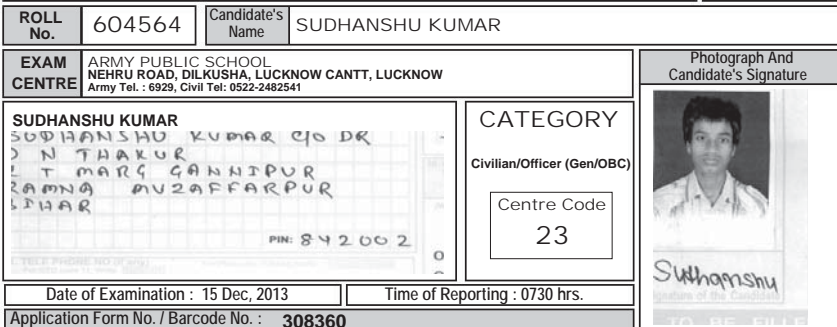 ROLL No. 604564 Candidate's Name SUDHANSHU KUMAR
EXAM CENTRE ARMY PUBLIC SCHOOL
NEHRU ROAD, DILKUSHA, LUCKNOW CANTT, LUCKNOW
Army Tel. : 6929, Civil Tel: 0522-2482541
Photograph And
Candidate's Signature
SUDHANSHU KUMAR
SUDHANSHU KUMAR C/O DR
N THAKUR
T MARG GANNIPUR
RAMNA MUZAFFARPUR
BIHAR
PIN: 842002
CATEGORY
Civilian/Officer (Gen/OBC)
Centre Code
23
Sudhanshu
Signature of the Candidate
Date of Examination : 15 Dec, 2013
Time of Reporting : 0730 hrs.
Application Form No. / Barcode No. : 308360
TO BE FILLE